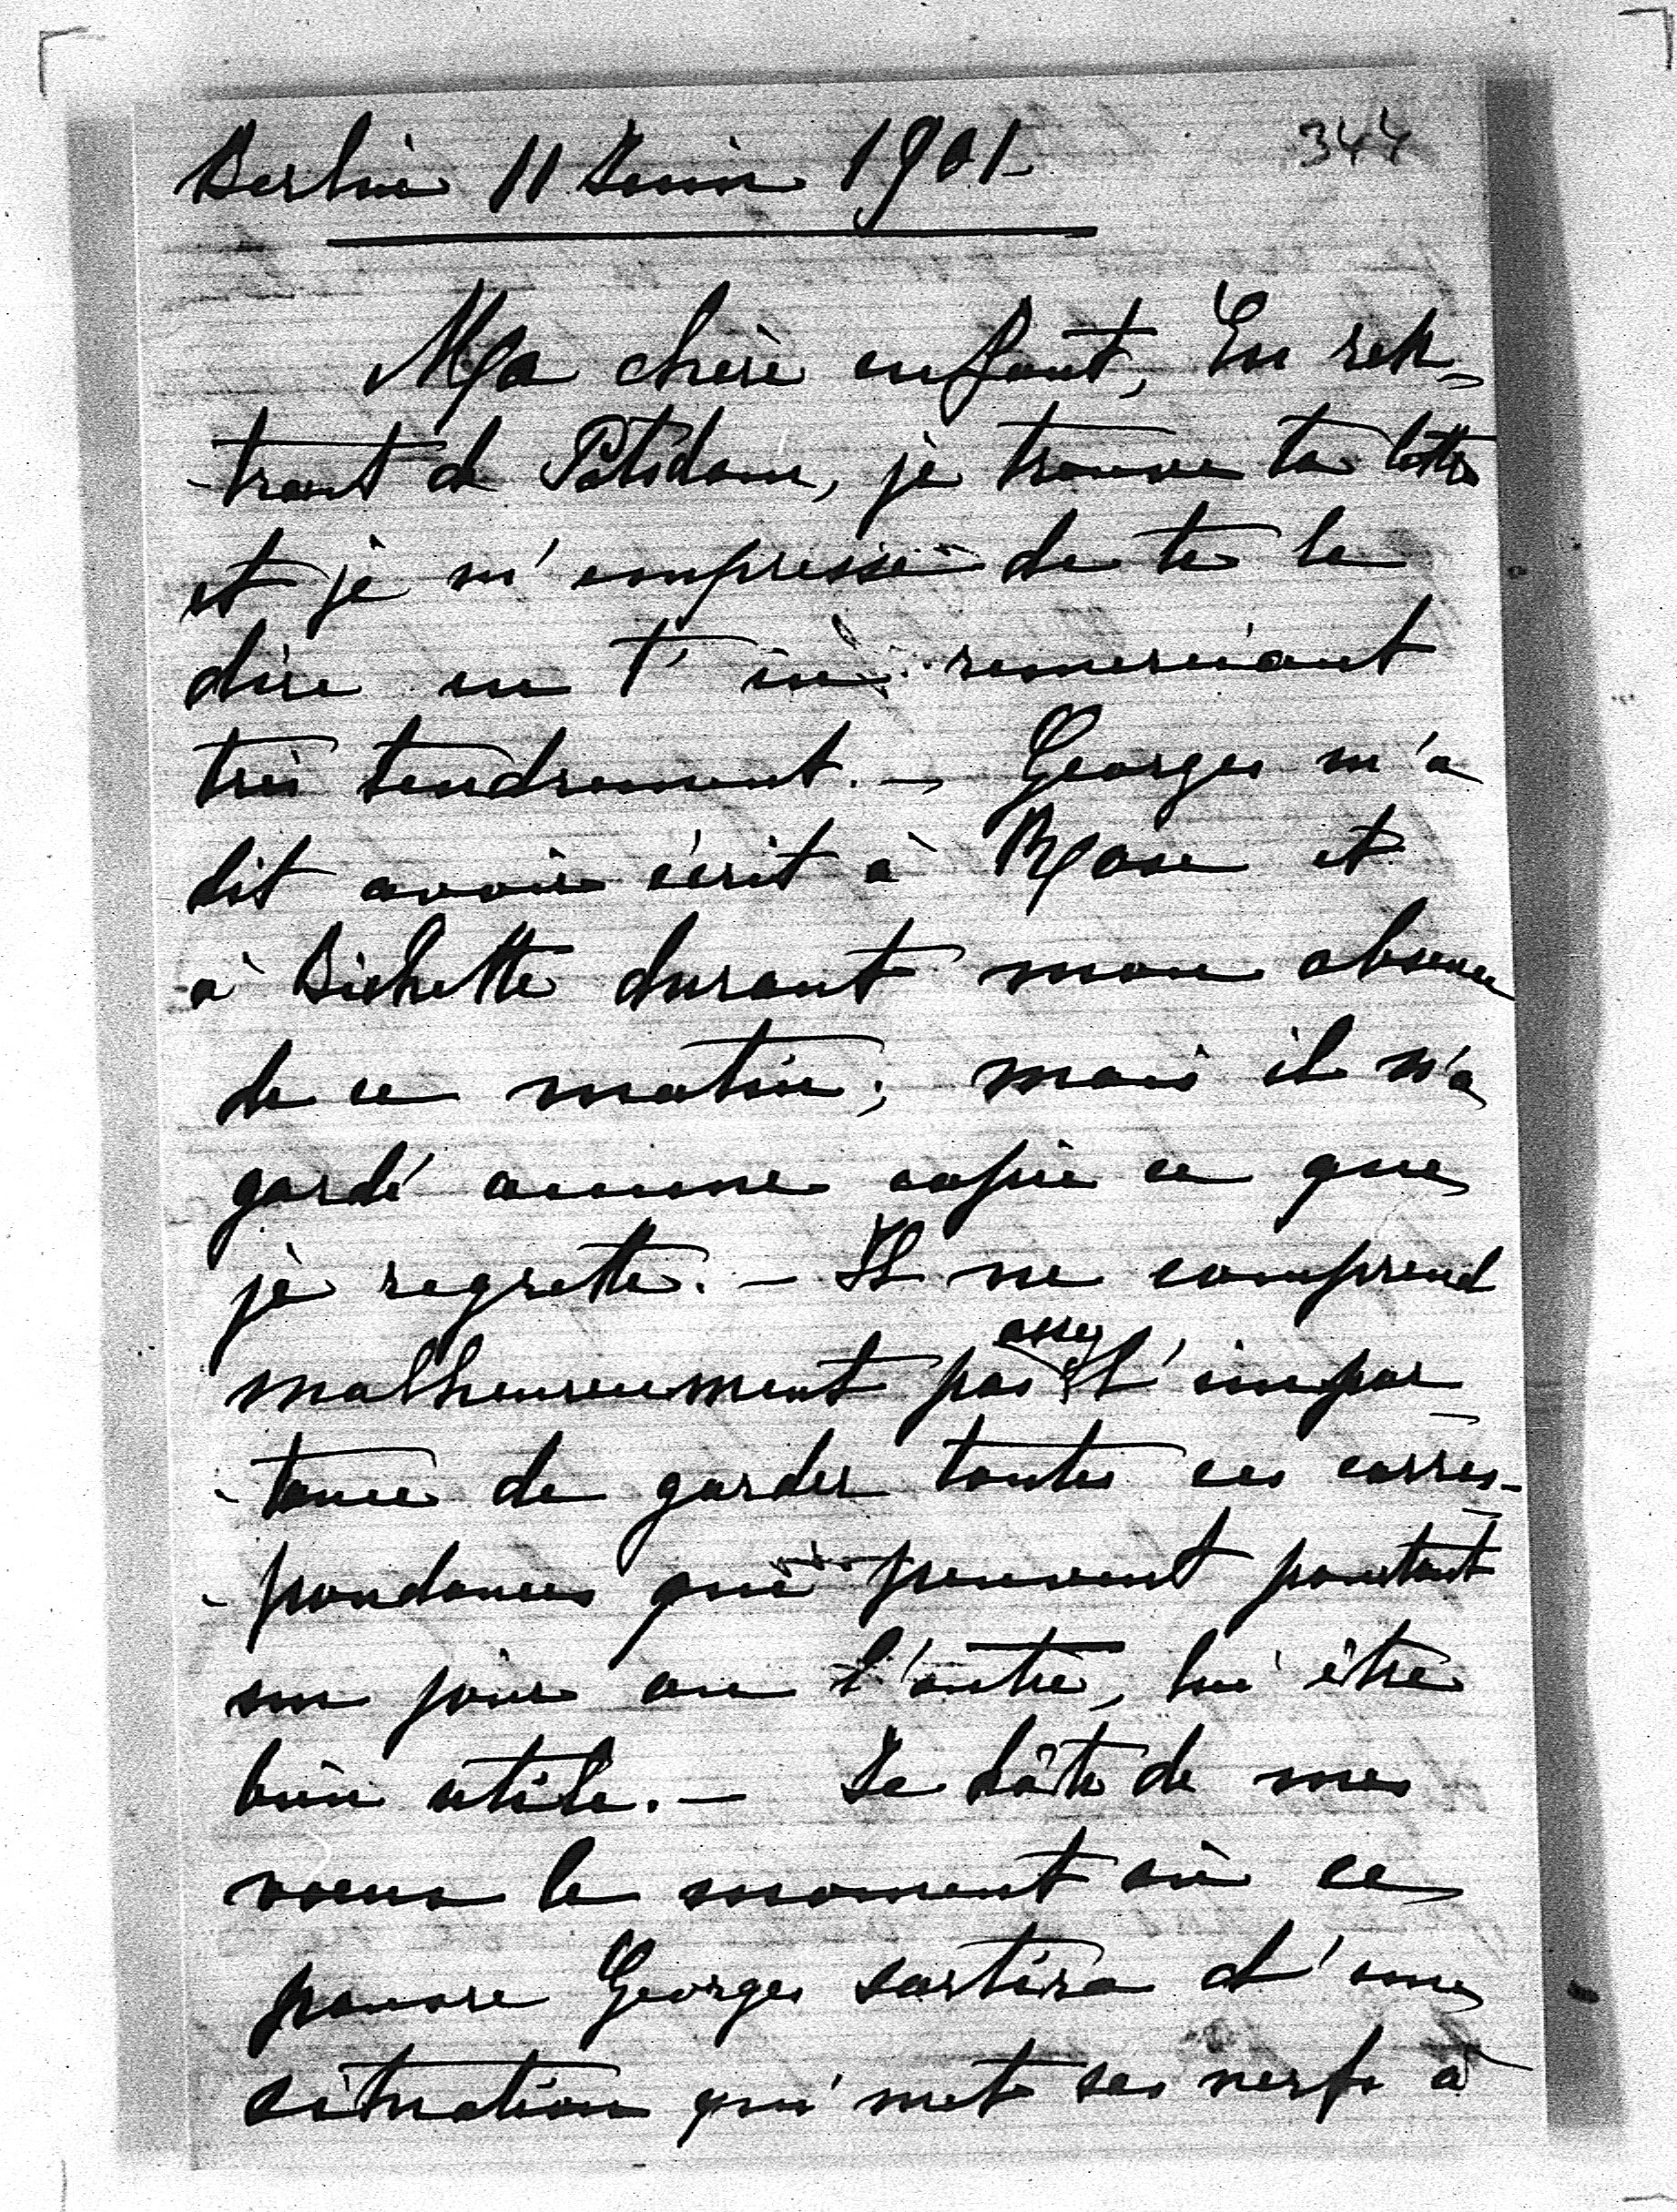 344
Berlin 11 Juin 1901-
Ma chère enfant, En ren=
-trant de Potsdam, je trouve ta lettre
et je m'empresse de te le
dire en t'en remerciant
très tendrement. - Georges m'a
dit avoir écrit à Rose et
à Bichette durant mon absence
de ce matin; mais il n'a
gardé aucune copie ce que
je regrette. - Il ne comprend
malheureusement pas assez l'impor-
-tance de garder toutes ces corres-
-pondances qui peuvent pourtant
un jour ou l'autre, lui être
bien utile. - Je hâte de mes
voeux le moment où ce
pauvre Georges sortira d'une
situation qui met ses nerfs à